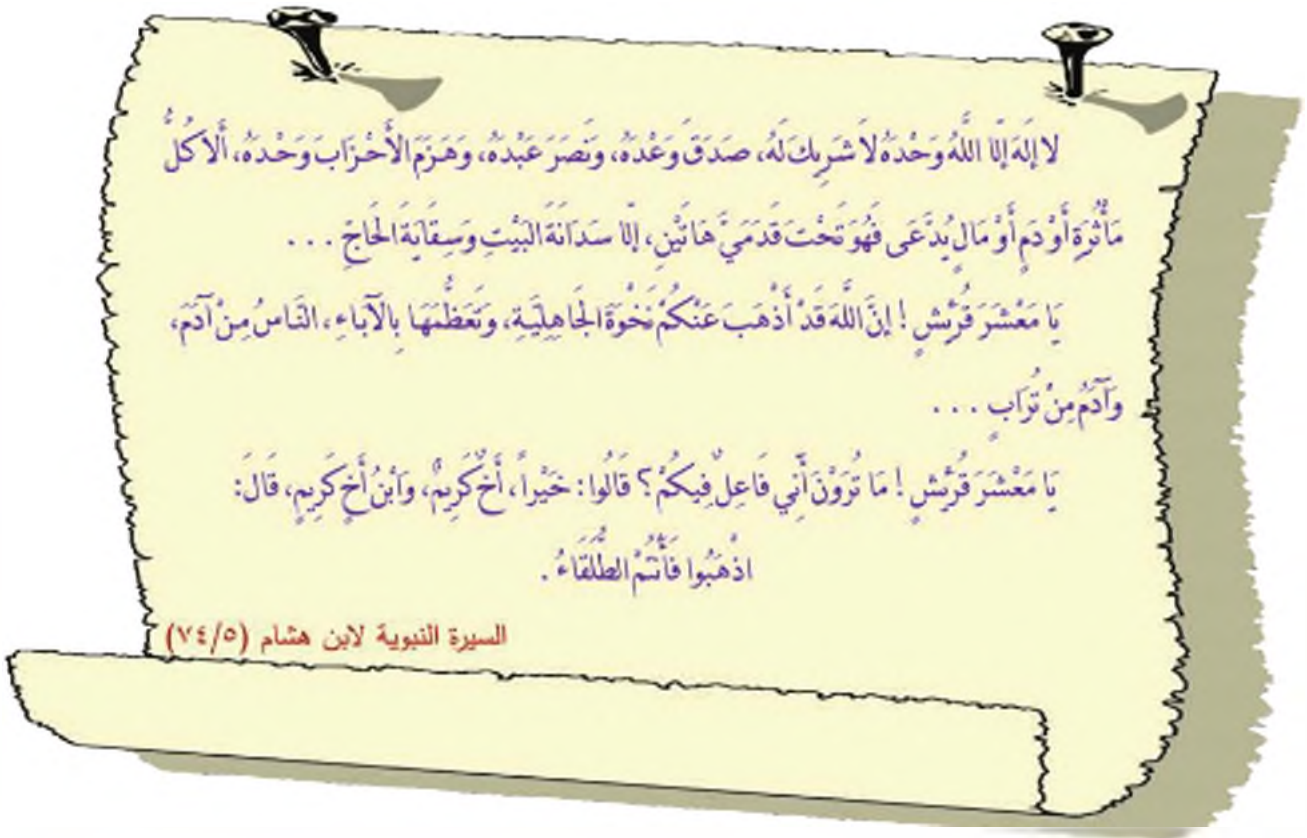 لا إِلَهَ إِلَّا اللَّهُ وَحْدَهُ لَا شَرِيكَ لَهُ، صَدَقَ وَعْدَهُ، وَنَصَرَ عَبْدَهُ، وَهَزَمَ الأَحْزَابَ وَحْدَهُ، أَلَا كُلُّ
مَأْثُرَةٍ أَوْ دَمٍ أَوْ مَالٍ يُدَّعَى فَهُوَ تَحْتَ قَدَمَيَّ هَاتَيْنِ، إِلَّا سَدَانَةَ البَيْتِ وَسِقَايَةَ الحَاجِّ . . .
يَا مَعْشَرَ قُرَيْشٍ ! إِنَّ اللَّهَ قَدْ أَذْهَبَ عَنْكُمْ نَخْوَةَ الجَاهِلِيَّةِ، وَتَعَظُّمَهَا بِالآبَاءِ، النَّاسُ مِنْ آدَمَ،
وَآدَمُ مِنْ تُرَابٍ . . .
يَا مَعْشَرَ قُرَيْشٍ ! مَا تُرَوْنَ أَنِّي فَاعِلٌ فِيكُمْ ؟ قَالُوا : خَيْراً، أَخٌ كَرِيمٌ، وَابْنُ أَخٍ كَرِيمٍ، قَالَ :
اذْهَبُوا فَأَنْتُمْ الطُّلَقَاءُ .
السيرة النبوية لابن هشام (٧٤/٥)